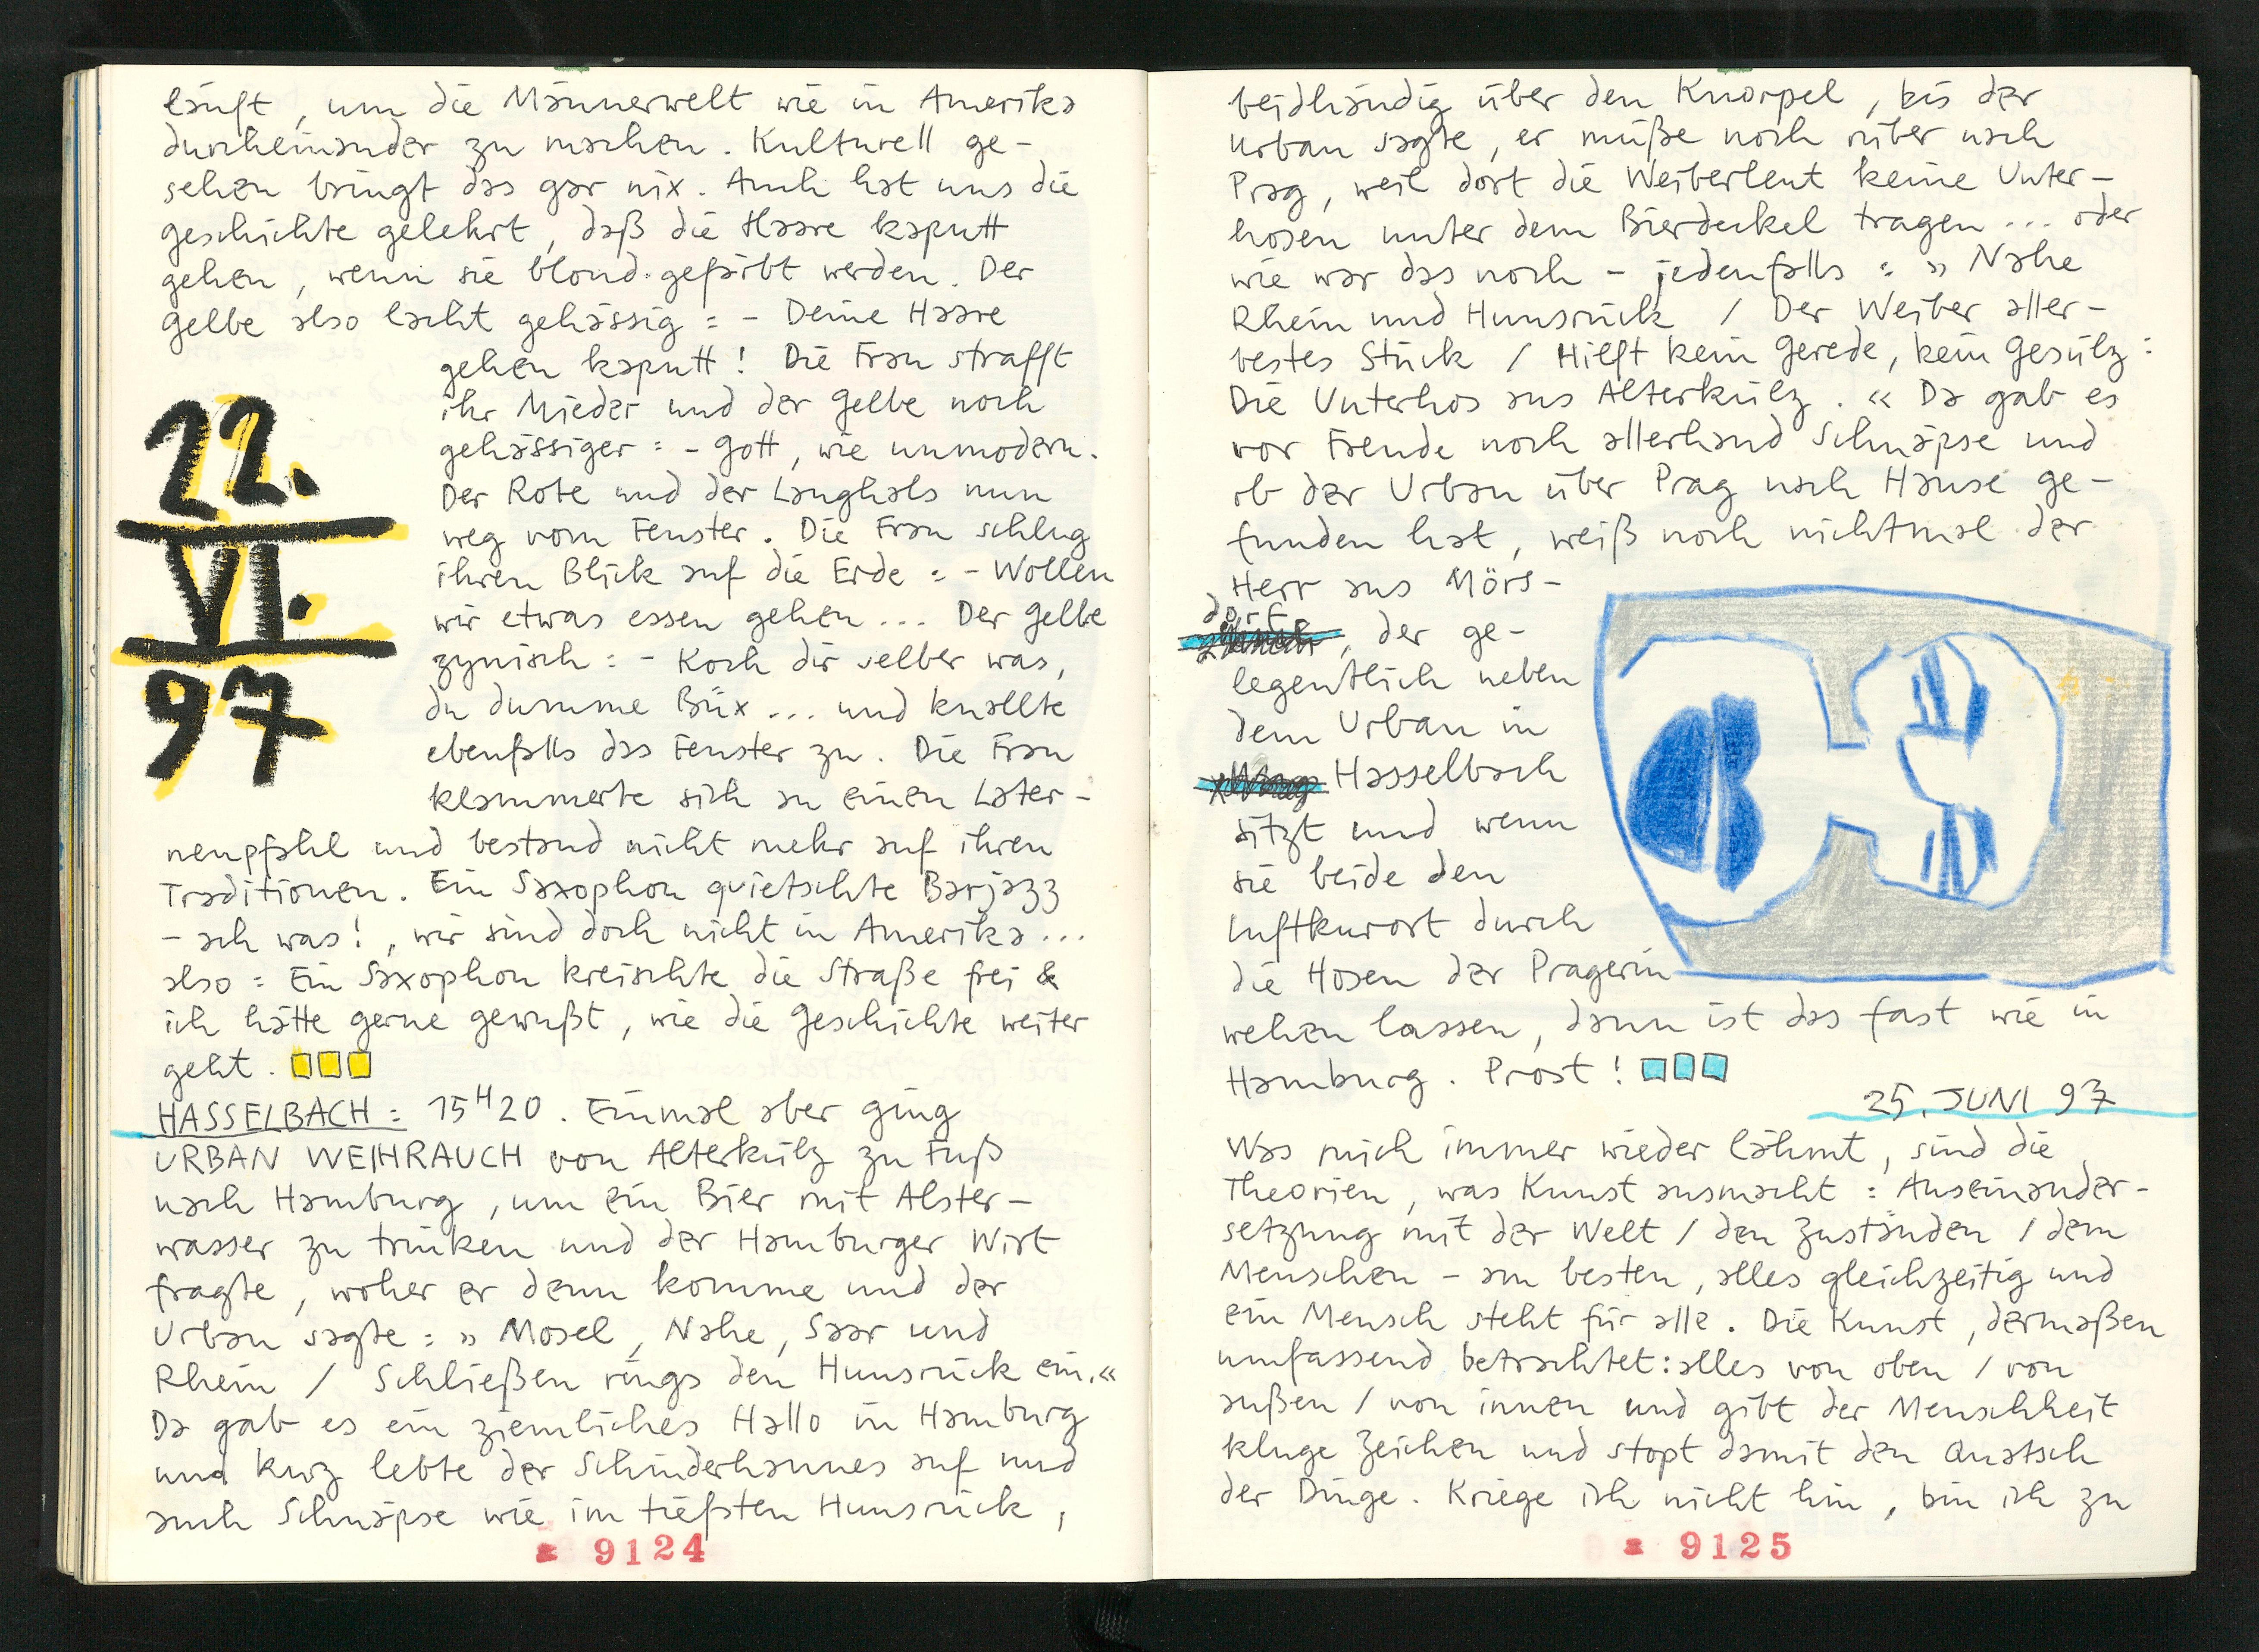 läuft, um die Männerwelt wie in Amerika
durcheinander zu machen. Kulturell ge-
sehen bringt das gar nix. Auch hat uns die
Geschichte gelehrt, daß die Haare kaputt
gehen, wenn sie blond gefärbt werden. Der
Gelbe also lacht gehässig: - Deine Haare
gehen kaputt! Die Frau strafft
ihr Mieder und der Gelbe noch
gehässiger: - Gott, wie unmodern.
Der Rote und der Langhals nun
weg vom Fenster. Die Frau schlug
ihren Blick auf die Erde: - Wollen
wir etwas essen gehen... Der Gelbe
zynisch: - Koch dir selber was,
du dumme Büx... und knallte
ebenfalls das Fenster zu. Die Frau
klammerte sich an einen Later-
nenpfahl und bestand nicht mehr auf ihren
Traditionen. Ein Saxophon quietschte Barjazz
- ach was!, wir sind doch nicht in Amerika...
also: Ein Saxophon kreischte die Straße frei &
ich hätte gerne gewußt, wie die Geschichte weiter
geht.
22.
VI.
97
HASSELBACH: 15H20. Einmal aber ging
URBAN WEIHRAUCH von Alterkülz zu Fuß
nach Hamburg, um ein Bier mit Alster-
wasser zu trinken und der Hamburger Wirt
fragte, woher er denn komme und der
Urban sagte: » Mosel, Nahe, Saar und
Rhein / Schließen rings den Hunsrück ein.«
Da gab es ein ziemliches Hallo in Hamburg
und kurz lebte der Schinderhannes auf und
auch Schnäpse wie im tiefsten Hunsrück,
9124
beidhändig über den Knorpel, bis der
Urban sagte, er müße noch rüber nach
Prag, weil dort die Weiberleut keine Unter-
hosen unter dem Bierdeckel tragen... oder
wie war das noch - jedenfalls: » Nahe
Rhein und Hunsrück / Der Weiber aller-
bestes Stück / Hilft kein Gerede, kein Gesülz:
Die Unterhos aus Alterkülz. « Da gab es
vor Freude noch allerhand Schnäpse und
ob der Urban über Prag nach Hause ge-
funden hat, weiß noch nichtmal der
Herr aus Mörs-
dorf, der ge-
legentlich neben
dem Urban in
Hasselbach
sitzt und wenn
sie beide den
Luftkurort durch
die Hosen der Pragerin
wehen lassen, dann ist das fast wie in
Hamburg. Prost!
25. JUNI 97
Was mich immer wieder lähmt, sind die
Theorien, was Kunst ausmacht: Auseinander-
setzung mit der Welt / den Zuständen / dem
Menschen - am besten, alles gleichzeitig und
ein Mensch steht für alle. Die Kunst, dermaßen
umfassend betrachtet: alles von oben / von
außen / von innen und gibt der Menschheit
kluge Zeichen und stopt damit den Quatsch
der Dinge. Kriege ich nicht hin, bin ich zu
9125